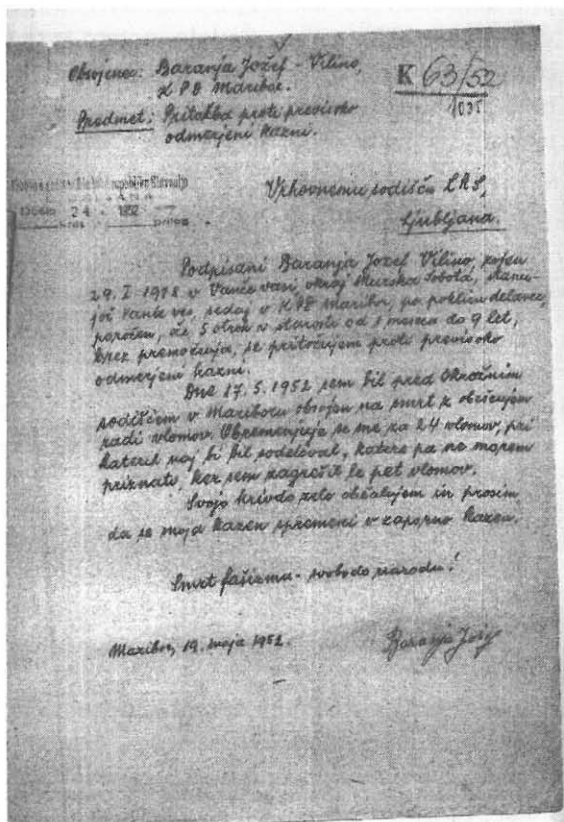 Obsojenec: Baranja Jožef - Vilino,
K P D Maribor.
K 63/52
Predmet: Pritožba proti previsoko
odmerjeni kazni.
24 1952
Vrhovnemu sodišču LRS,
Ljubljana.
Podpisani Baranja Jožef Vilino, rojen
29. I. 1918 v Vanča vasi okraj Murska Sobota, stanu-
joč Vanča ves, sedaj v K P D Maribor, po poklicu delavec,
poročen, oče 5 otrok v starosti od 1 meseca do 9 let,
brez premoženja, se pritožujem proti previsoko
odmerjeni kazni.
Dne 17. 5. 1952 sem bil pred Okrožnim
sodiščem v Mariboru obsojen na smrt z obešenjem
radi vlomov. Obremenjuje se me za 24 vlomov, pri
katerih naj bi bil sodeloval, katere pa ne morem
priznati, ker sem zagrešil le pet vlomov.
Svojo krivdo zelo obžalujem in prosim
da se moja kazen spremeni v zaporno kazen.
Smrt fašizmu - svoboda narodu!
Maribor, 19. maja 1952.
Baranja Jožef